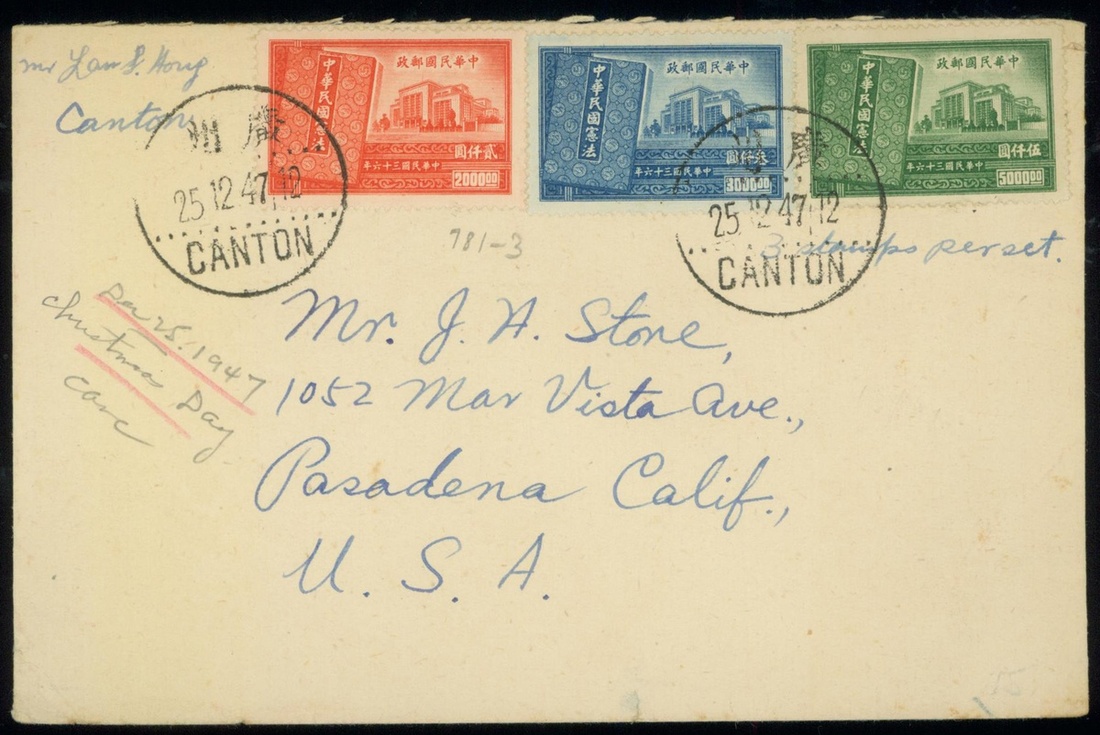 mr Lam S. Hong
Canton
政郵國民華中
中華民國憲法
圓仟貳
年六十三國民華中
2000 00
政郵國民華中
中華民國憲法
圓仟叁
年六十三國民華中
3000 00
政郵國民華中
中華民國憲法
圓仟伍
年六十三國民華中
5000 00
州廣
25 12 47 12
CANTON
州廣
25 12 47 12
CANTON
781-3
3 stamps per set.
Dec 25. 1947
Christmas Day
canc
Mr. J. H. Stone,
1052 Mar Vista Ave.,
Pasadena Calif.,
U. S. A.